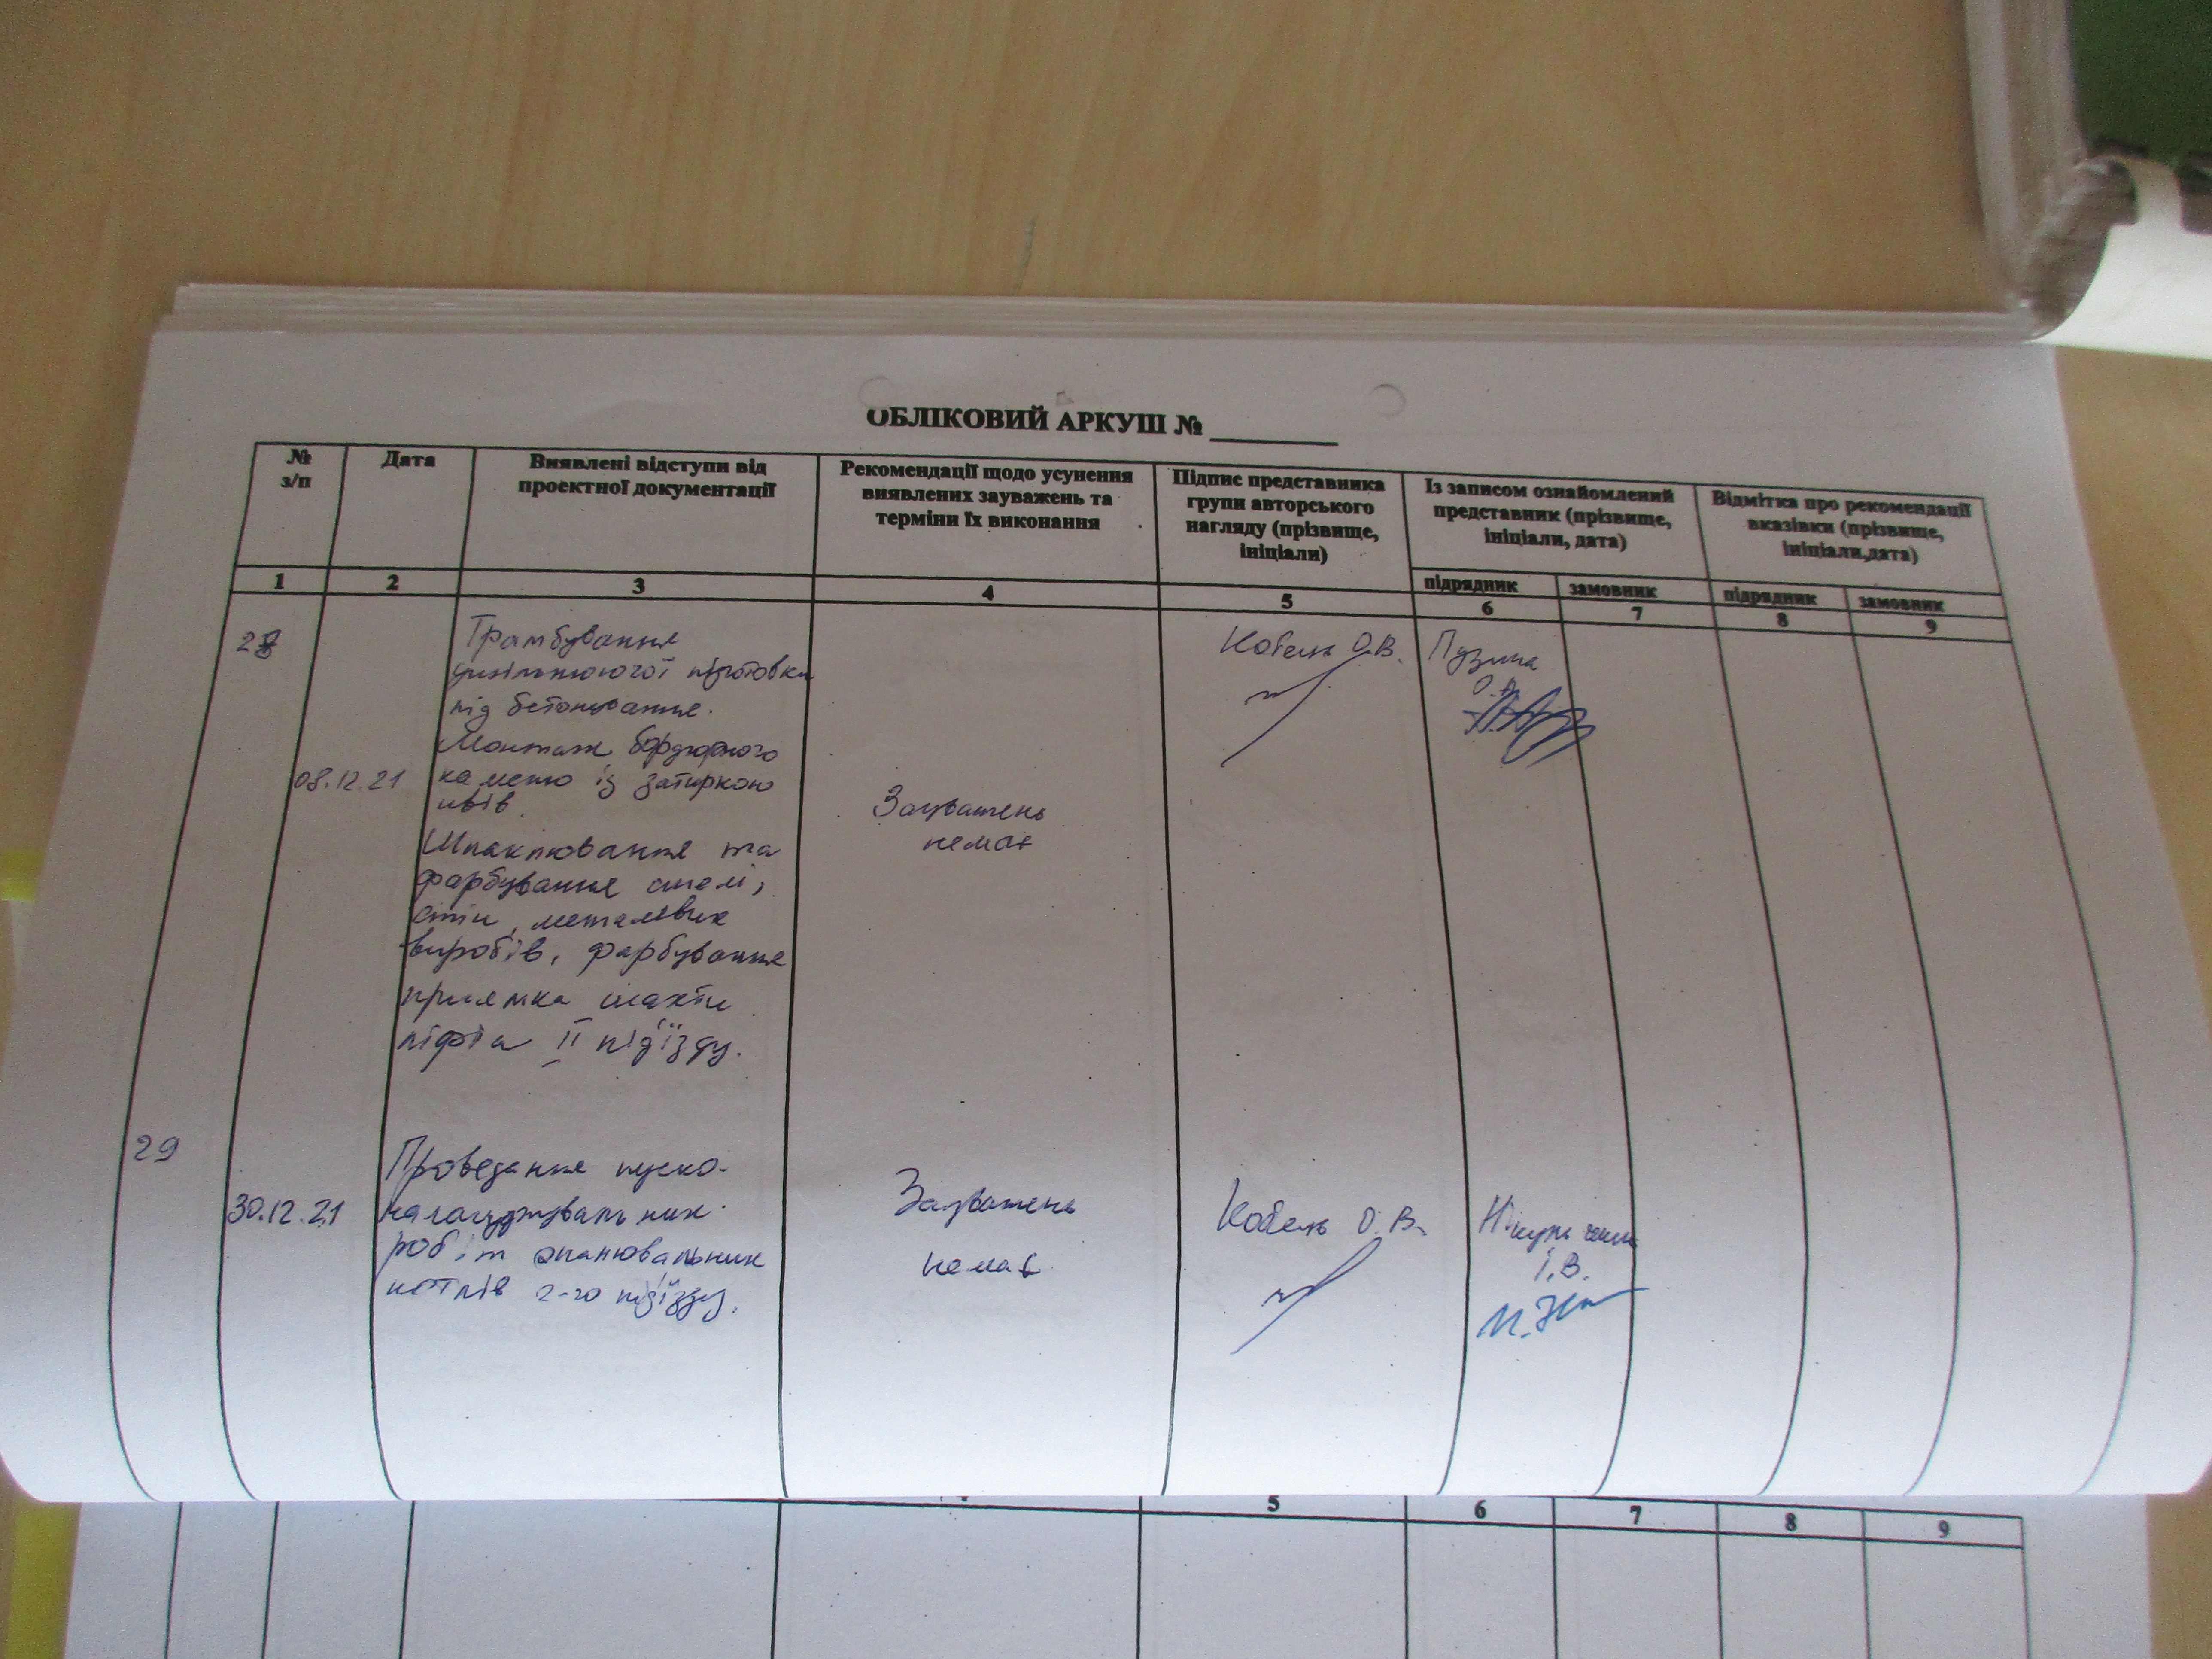 ОБЛІКОВИЙ АРКУШ №
№
з/п
Дата
Виявлені відступи від
проектної документації
Рекомендації щодо усунення
виявлених зауважень та
терміни їх виконання
Підпис представника
групи авторського
нагляду (прізвище,
ініціали)
Із записом ознайомлений
представник (прізвище,
ініціали, дата)
Відмітка про рекомендації
вказівки (прізвище,
ініціали,дата)
підрядник
замовник
підрядник
замовник
1 2 3 4 5 6 7 8 9
28
08.12.21
Трамбування
підготовки
під бетонування.
Монтаж бордюрного
каменю із затиркою
швів.
Шпаклювання та
фарбування стелі,
стін, металевих
виробів, фарбування
приямка шахти
ліфта II під'їзду.
Зауважень
немає
Кобель О.В.
29
30.12.21
Проведення пуско-
налагоджувальних
робіт опалювальних
котлів 2-го під'їзду.
Зауважень
немає
Кобель О.В.
І.В.
5 6 7 8 9